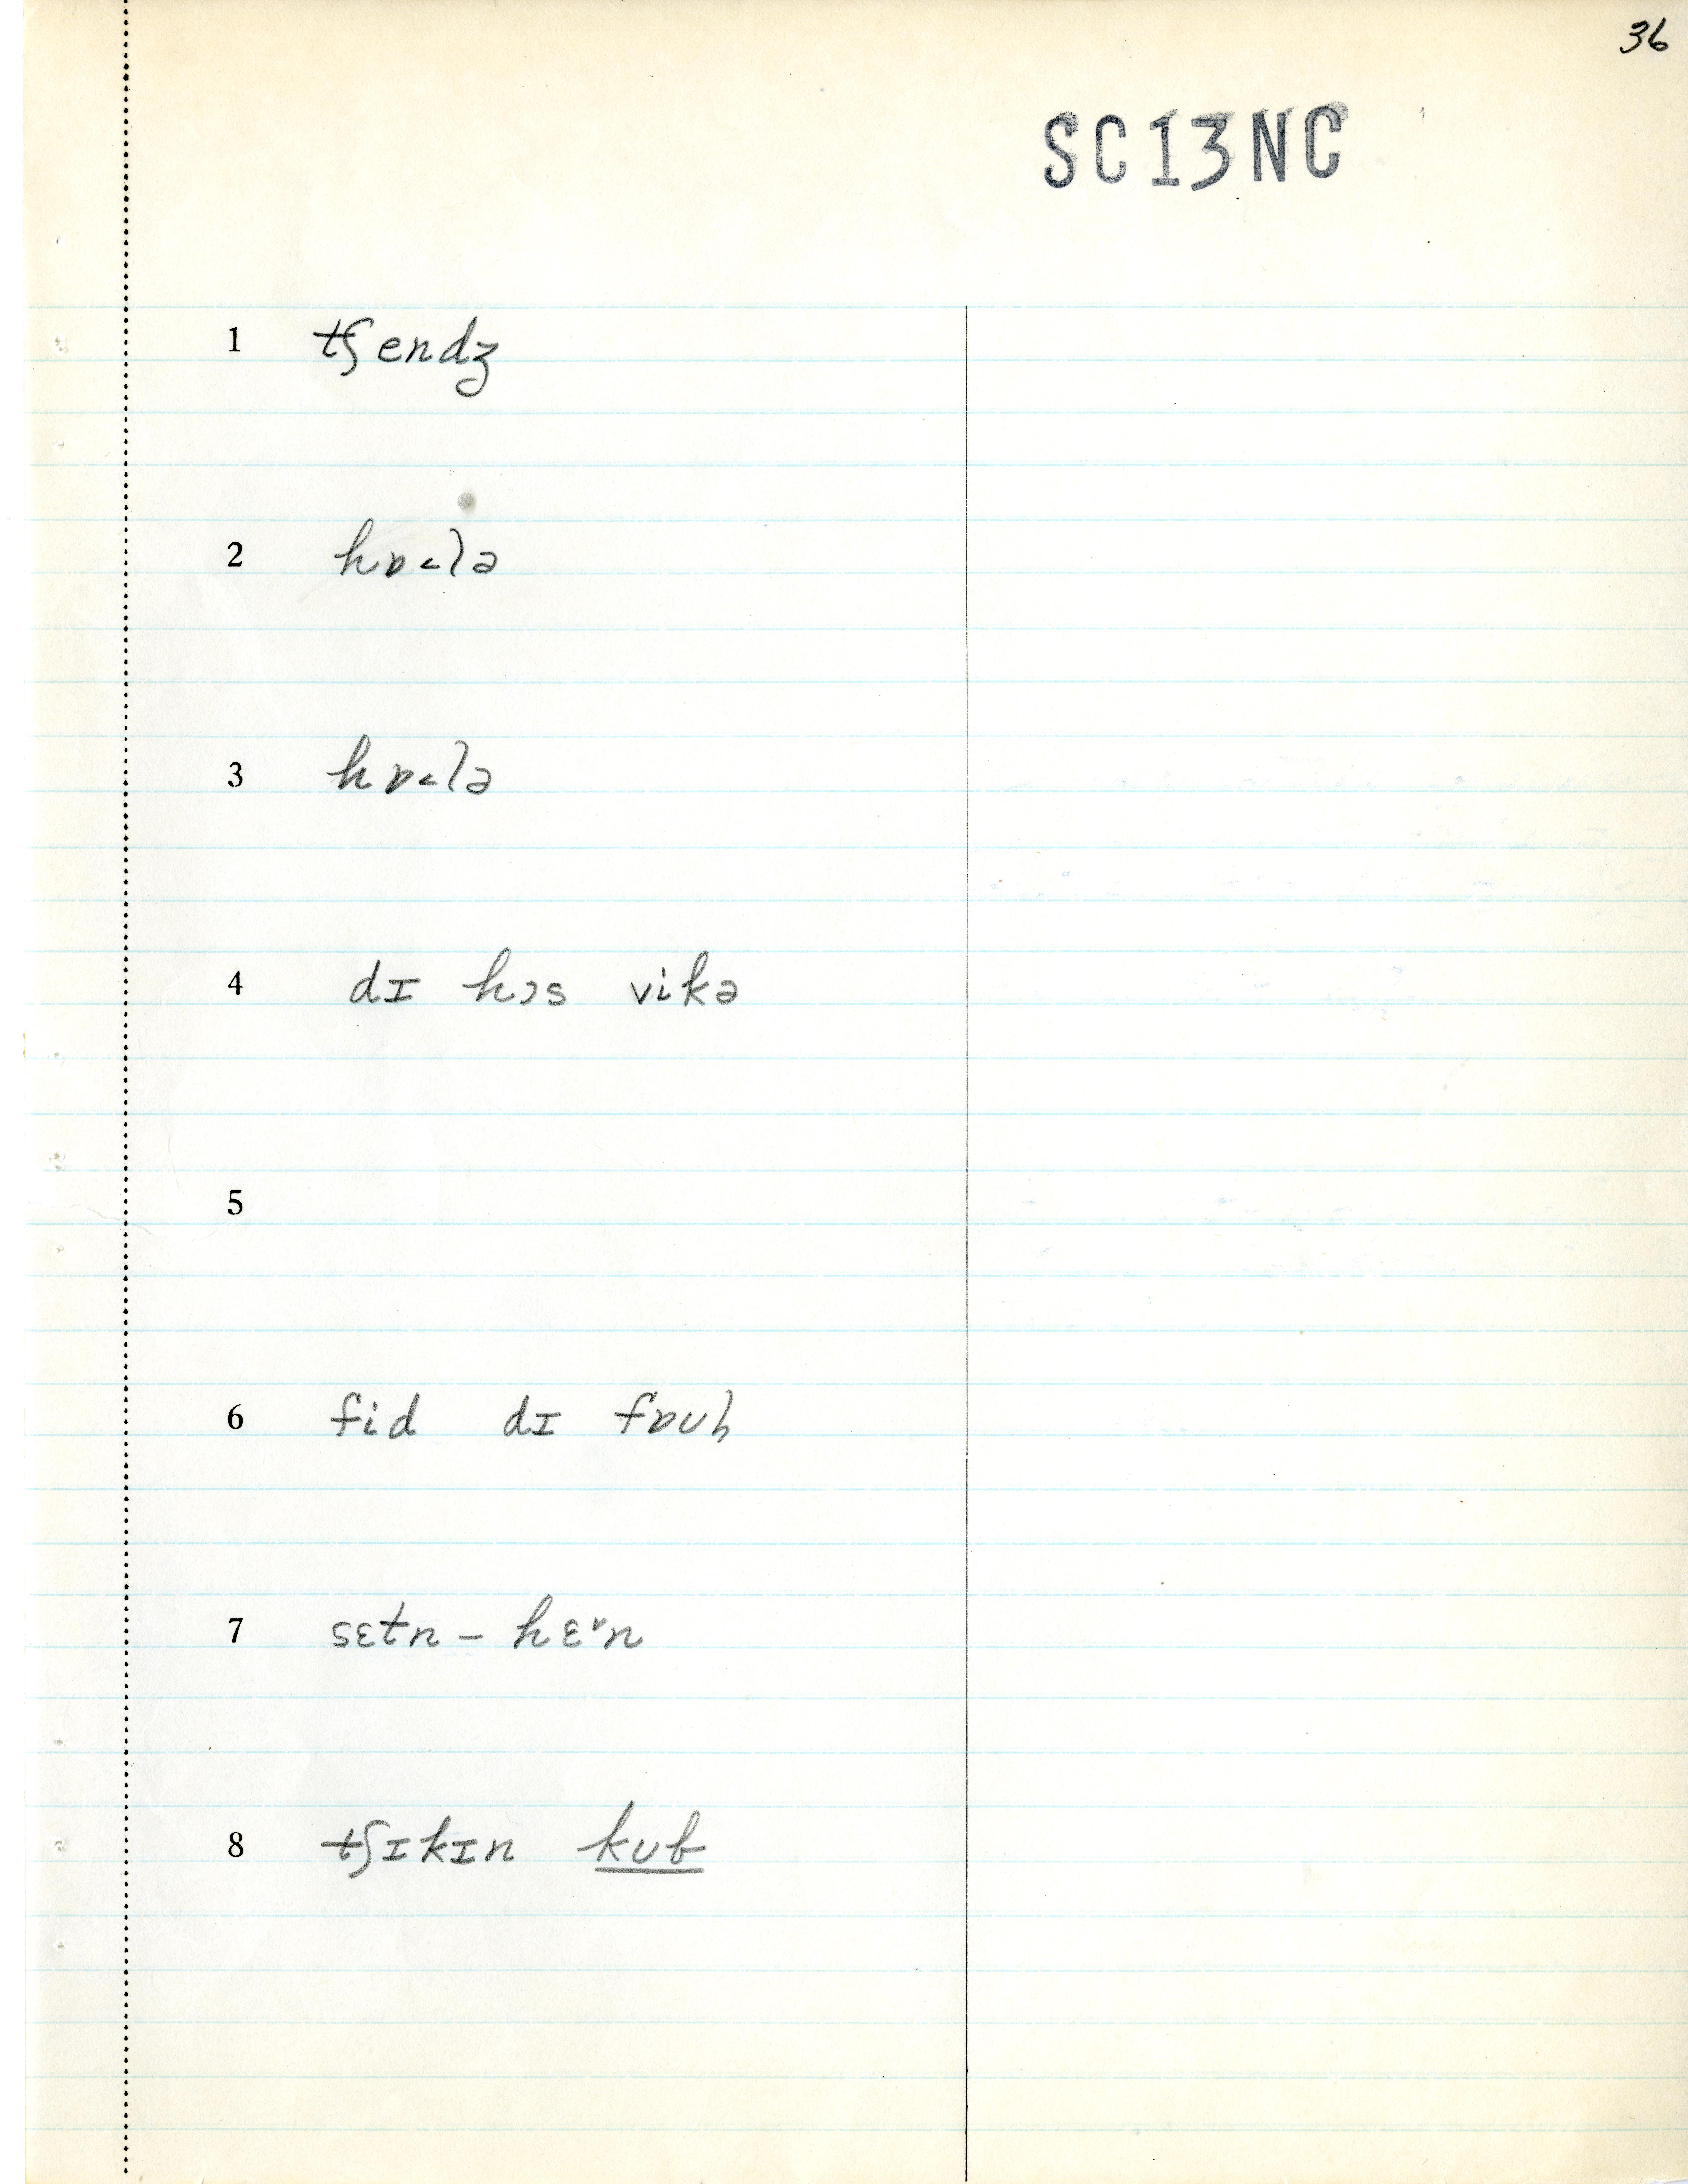 36
SC13NC
1 tʃendʒ
2 hɒ˂lə
3 hɒ˂lə
4 dɪ hɔs vikə
5
6 fid dɪ fɒʊl
7 sɛtn - hɛ˅n
8 tʃɪkɪn kub